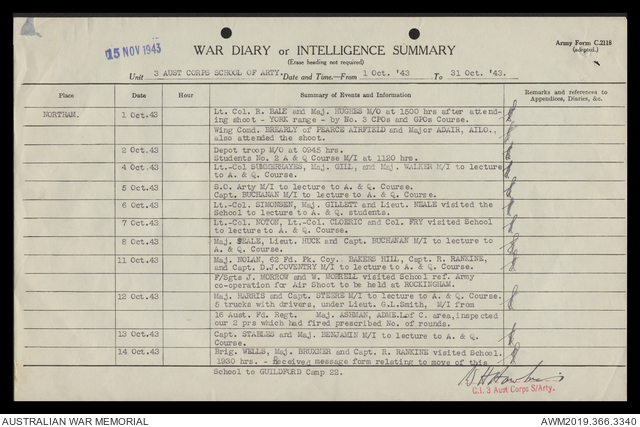 15 NOV 1943
WAR DIARY or INTELLIGENCE SUMMARY
(Erase heading not required)
Army Form C.2118
(adapted.)
Unit 3 AUST CORPS SCHOOL OF ARTY. Date and Time.—From 1 Oct. '43 To 31 Oct. '43.
Place
Date
Hour
Summary of Events and Information
Remarks and references to
Appendices, Diaries, &c.
NORTHAM. 1 Oct.43 Lt. Col. R. BALE and Maj. HUGHES M/O at 1500 hrs after attend-
ing shoot - YORK range - by No. 3 CPOs and GPOs Course.
Wing Comd. BREARLY of PEARCE AIRFIELD and Major ADAIR, AILO.,
also attended the shoot.
2 Oct.43 Depot troop M/O at 0945 hrs.
Students No. 2 A & Q Course M/I at 1120 hrs.
4 Oct.43 Lt.-Col SUMMERHAYES, Maj. GILL, and Maj. WALKER M/I to lecture
to A. & Q. Course.
5 Oct.43 S.O. Arty M/I to lecture to A. & Q. Course.
Capt. BUCHANAN M/I to lecture to A. & Q. Course.
6 Oct.43 Lt.-Col. SIMONSEN, Maj. GILLETT and Lieut. NEALE visited the
School to lecture to A. & Q. students.
7 Oct.43 Lt.-Col. NOTON, Lt.-Col. and Col. FRY visited School
to lecture to A. & Q. Course.
8 Oct.43 Maj. SEALE, Lieut. HUCK and Capt. BUCHANAN M/I to lecture to
A. & Q. Course.
11 Oct.43 Maj. NOLAN, 62 Fd. Pk. Coy., BAKERS HILL, Capt. R. RANKINE,
and Capt. D.J.COVENTRY M/I to lecture to A. & Q. Course.
F/Sgts J. MORROW and W. MORRELL visited School ref. Army
co-operation for Air Shoot to be held at ROCKINGHAM.
12 Oct.43 Maj. HARRIS and Capt. STEERE M/I to lecture to A. & Q. Course.
5 trucks with drivers, under Lieut. G.L.Smith, M/I from
16 Aust. Fd. Regt. Maj. ASHMAN, ADME.LofC. area,inspected
our 2 prs which had fired prescribed No. of rounds.
13 Oct.43 Capt. STABLES and Maj. BENJAMIN M/I to lecture to A. & Q.
Course.
14 Oct.43 Brig. WELLS, Maj. BRUXNER and Capt. R. RANKINE visited School.
1930 hrs. - Received message form relating to move of this
School to GUILDFORD Camp 22.
C.I. 3 Aust Corps S/Arty.
AUSTRALIAN WAR MEMORIAL
AWM2019.366.3340